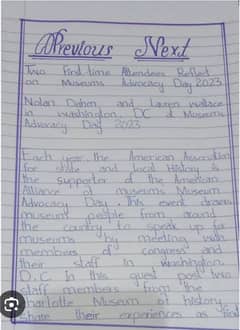 Previous Next
Two First-time Attendees Reflect
on Museums Advocacy Day 2023
Nolan Dahm, and Lauren Wallace
in Washington, DC of Museums
Advocacy Day 2023
Each year, the American Association
for state and Local History is
the supporter of the American
Alliance of museums Museum
Advocacy Day. This event draws
museum people from around
the country to speak up for
museums by meeting with
members of congress and
their staff in Washington.
D.C. In this guest post two
staff members from the
Charlotte Museum of history
share their experiences as first